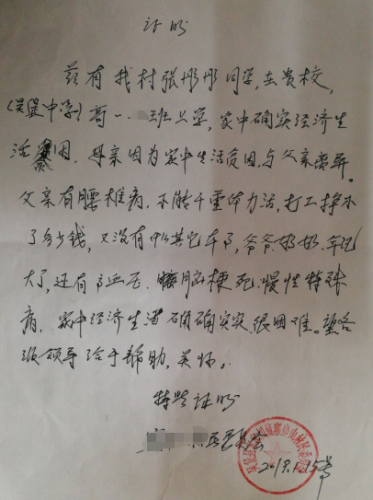 证明
兹有我村张彤彤同学,在贵校,
(吴堡中学)高一 班上学,家中确实经济生
活贫困.母亲因为家中生活贫困,与父亲离异。
父亲有腰椎病.不能干重体力活,打工挣不
了多少钱,又没有其它
大了,还有高血压.脑梗死.慢性特殊
病.家中经济生活确确实实很困难。望各
级领导给于帮助.关怀。
特此证明